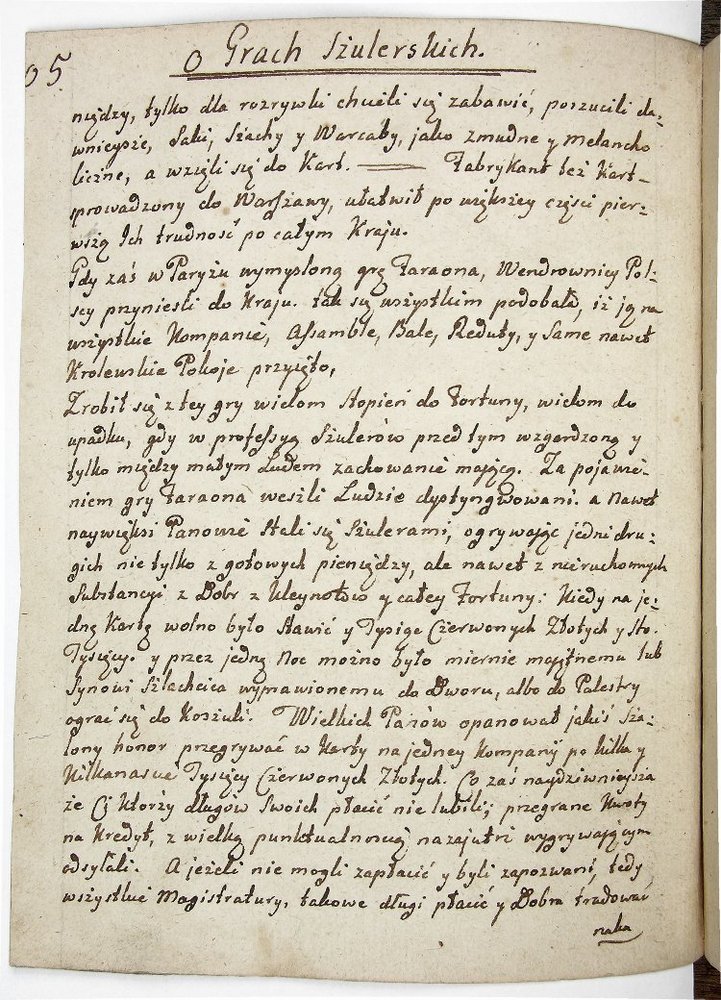 05
o Grach Szulerskich.
niędzy, tylko dla rozrywki chcieli się zabawić, porzucili da-
wnieysze, Saki, Szachy y Warcaby, jako zmudne y melancho
liczne, a wzięli się do Kart. —— Fabrykant też Kart-
sprowadzony do Warszawy, ułatwił po większey części pier-
wszą Ich trudność po całym Kraju.
Gdy zaś w Paryżu wymysloną grę Faraona, Wendrownicy Pol-
scy przyniesli do Kraju. tak się wszystkim podobała, iż ją na
wszystkie Kompanie, Assamble, Bale, Reduty, y same nawet
Krolewskie Pokoje przyięto,
Zrobił się z tey gry wielom stopień do Fortuny, wielom do
upadku, gdy w professyą Szulerów przed tym wzgardzoną y
tylko między małym Ludem zachowanie mającą. Za pojawie-
niem gry Faraona weszli Ludzie dystyngwowani. a nawet
naywięksi Panowie stali się Szulerami, ogrywając jedni dru-
gich nie tylko z gotowych pieniędzy, ale nawet z nieruchomych
Substancyi z Dobr z Kleynotow y całey Fortuny: Kiedy na je-
dnę Kartę wolno było stawić y Tysiąc Czerwonych Złotych y sto.
Tysięcy. y przez jedną noc można było miernie majętnemu lub
Synowi Szlachcica wyprawionemu do Dworu, albo do Palestry
ograć się do Koszuli. Wielkich Panów opanował jakiś sza-
lony honor przegrywać w Karty na jedney Kompanij po kilka y
Kilkanascie Tysięcy Czerwonych Złotych. Co zaś naydziwnieysza
że Ci ktorzy długów swoich płacić nie lubili; przegrane Kwoty
na Kredyt, z wielką punktualnoscią nazajutrz wygrywającym
odsyłali. A jeżeli nie mogli zapłacić y byli zapozwani, tedy
wszystkie Magistratury, takowe długi płacić y Dobra tradować
naka